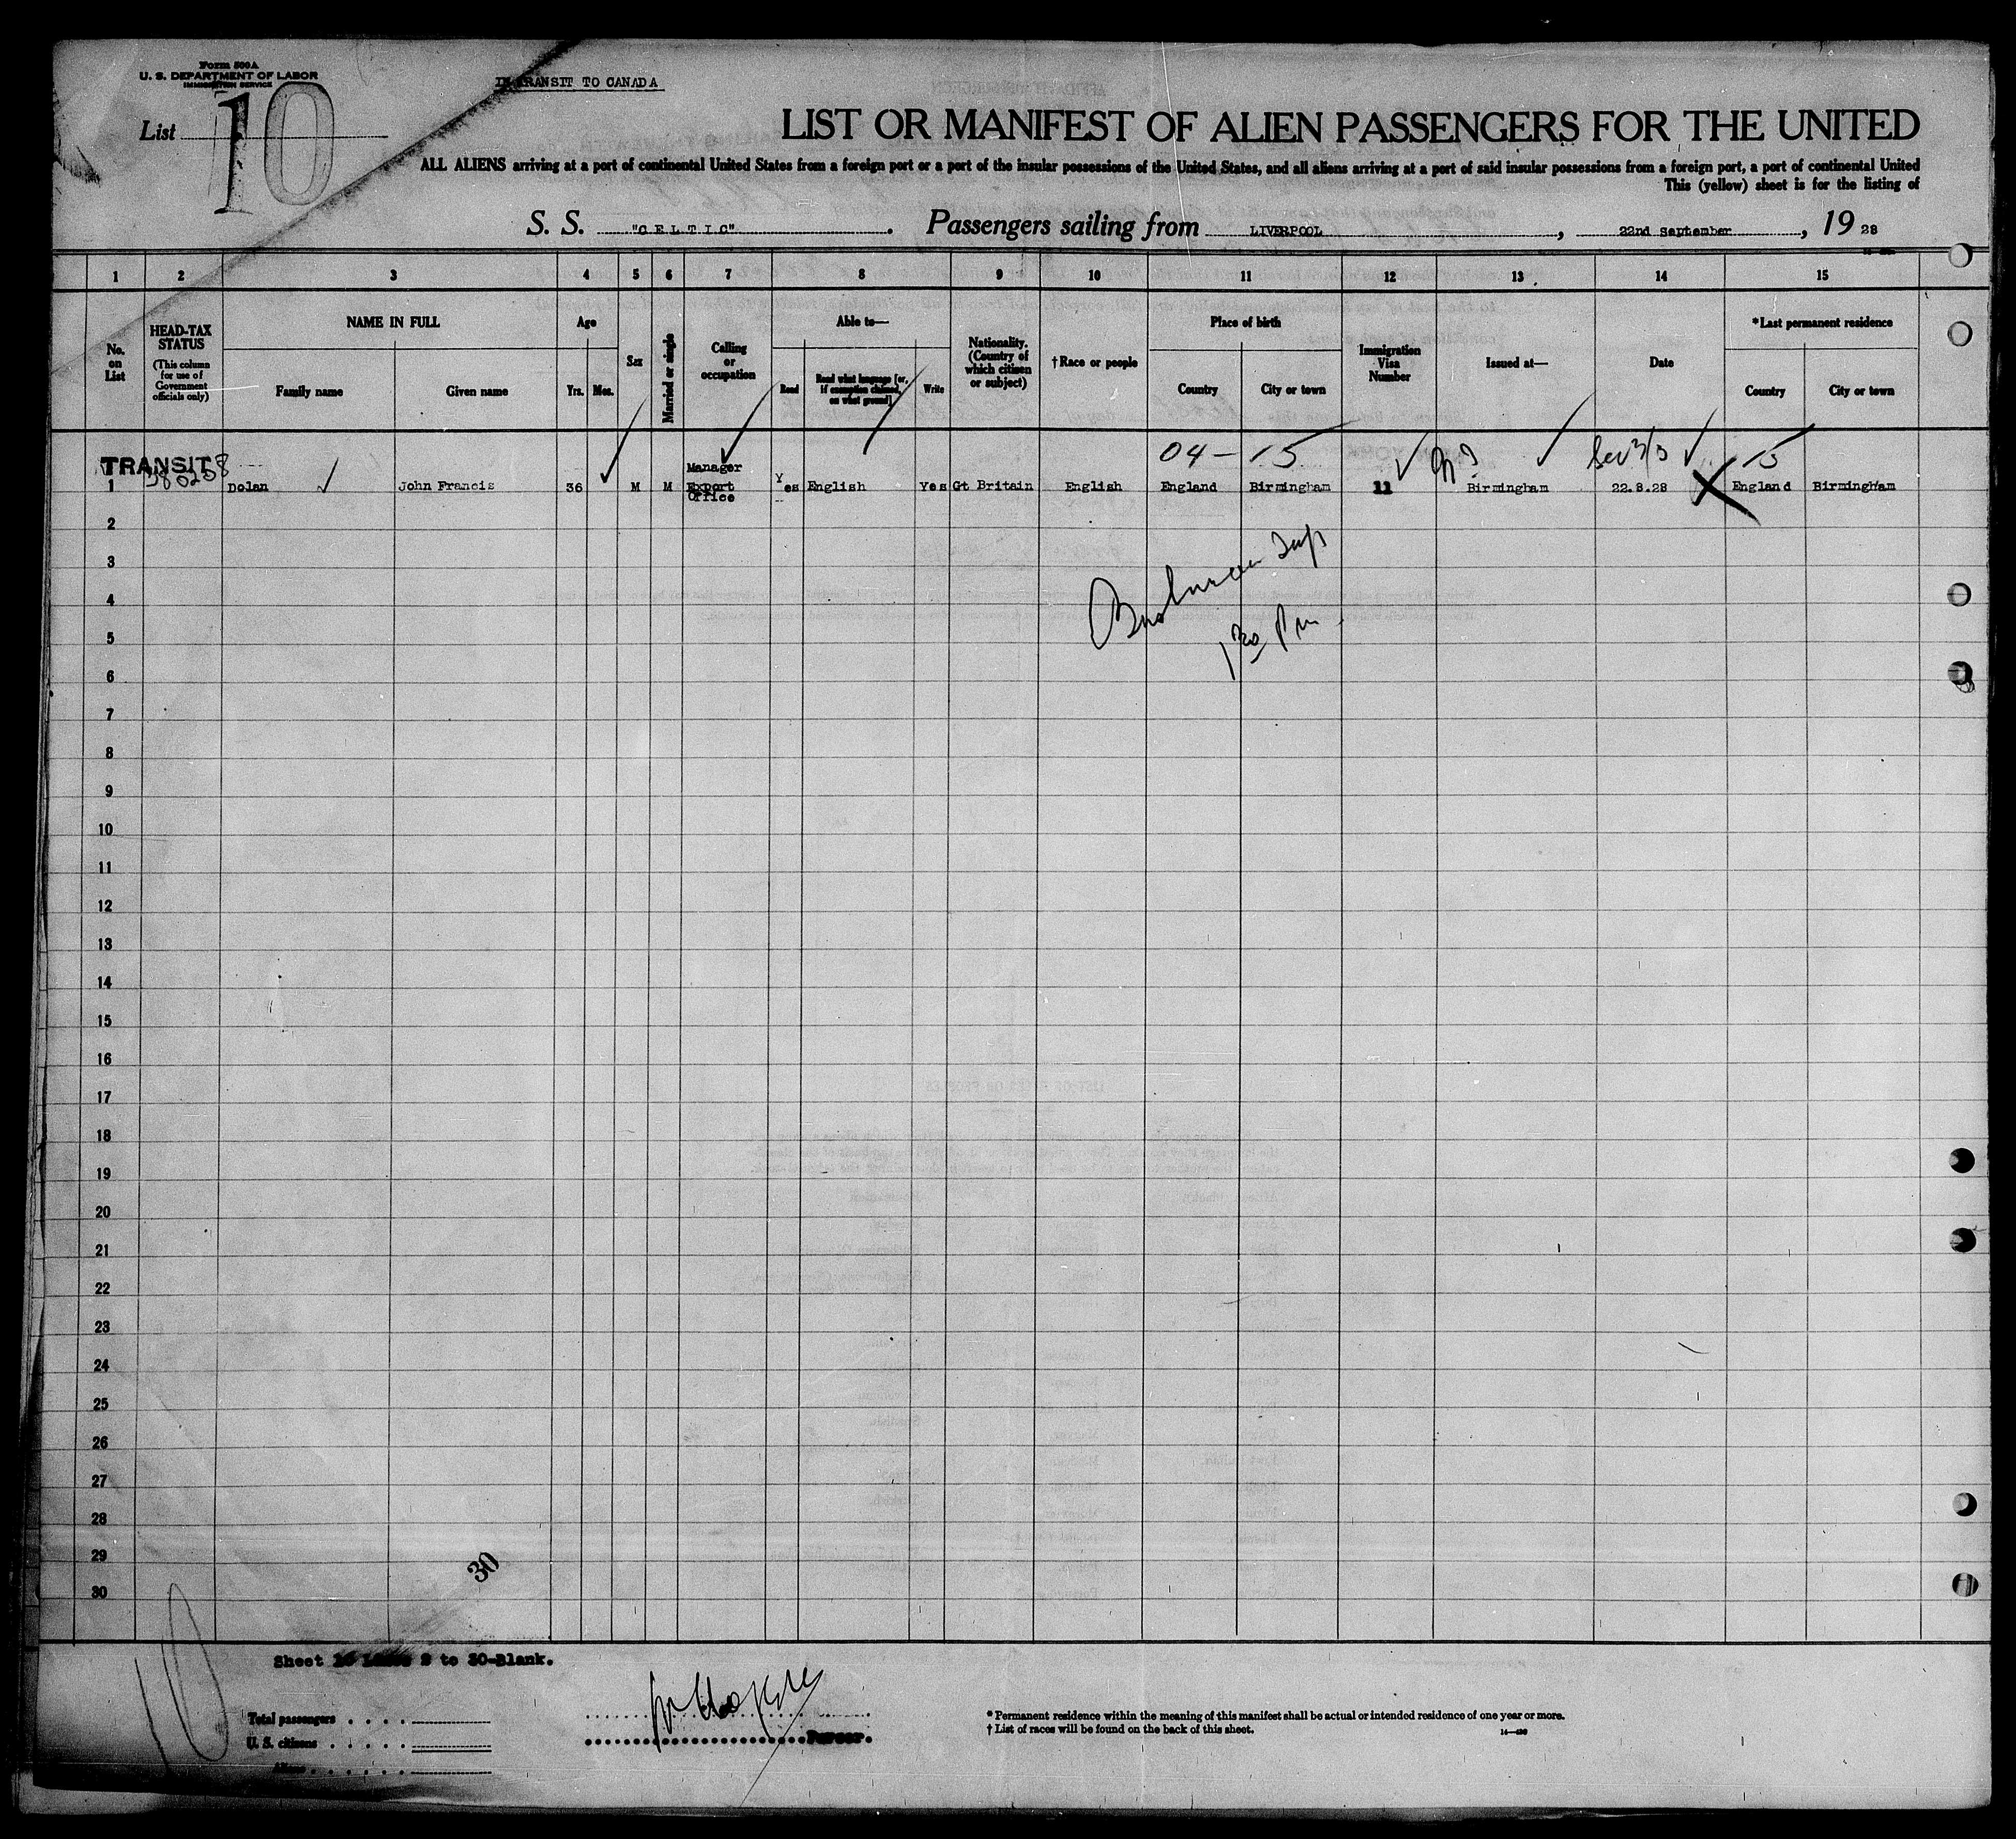 Form 500A
U. S. DEPARTMENT OF LABOR
IMMIGRATION SERVICE
IN TRANSIT TO CANADA
List 10
LIST OR MANIFEST OF ALIEN PASSENGERS FOR THE UNITED
ALL ALIENS arriving at a port of continental United States from a foreign port or a port of the insular possessions of the United States, and all aliens arriving at a port of said insular possessions from a foreign port, a port of continental United
This (yellow) sheet is for the listing of
S. S. "CELTIC". Passengers sailing from LIVERPOOL, 22nd September, 19 28
1 2 3 4 5 6 7 8 9 10 11 12 13 14 15
No. on List
HEAD-TAX STATUS
(This column for use of Government officials only)
NAME IN FULL
Family name
Given name
Age
Yrs.
Mos.
Sex
Married or single
Calling or occupation
Able to—
Read
Read what language [or, if exemption claimed, on what ground]
Write
Nationality. (Country of which citizen or subject)
†Race or people
Place of birth
Country
City or town
Immigration Visa Number
Issued at—
Date
*Last permanent residence
Country
City or town
04 - 15
15
TRANSIT
1 Dolan John Francis 36 M M Manager Export Office Yes English Yes Gt Britain English England Birmingham 11 Birmingham 22.8.28 England Birmingham
2
3
4
5
1 30 Pm
6
7
8
9
10
11
12
13
14
15
16
17
18
19
20
21
22
23
24
25
26
27
28
29
30
30
10
Sheet 2 to 30-Blank.
Total passengers
U. S. citizens
Aliens
Purser.
* Permanent residence within the meaning of this manifest shall be actual or intended residence of one year or more.
† List of races will be found on the back of this sheet.